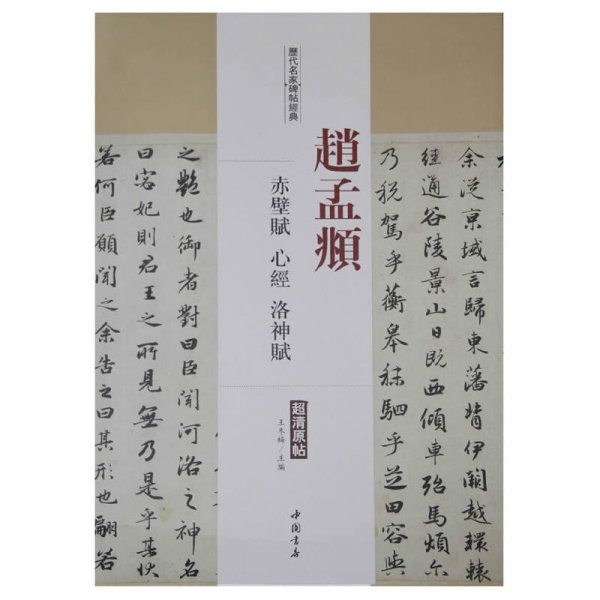 余從京域言歸東藩背伊闕越轘轅
經通谷陵景山日既西傾車殆馬煩尔
乃稅駕乎蘅皋秣駟乎芝田容與
歷代名家碑帖經典
趙孟頫
赤壁賦 心經 洛神賦
超清原帖
王冬梅/主編
中國書店
之豔也御者對曰臣聞河洛之神名
曰宓妃則君王之所見無乃是乎其狀
若何臣願聞之余告之曰其形也翩若